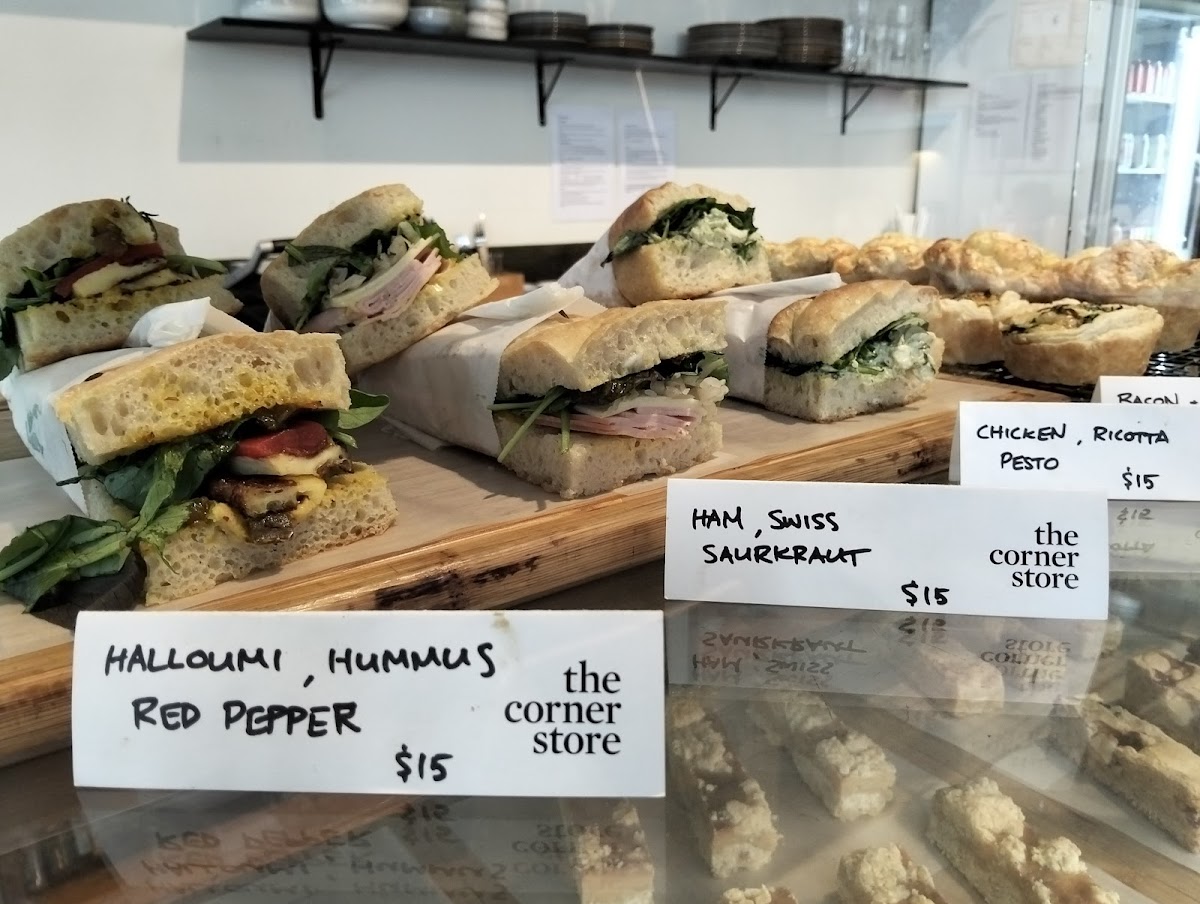 HALLOUMI, HUMMUS
RED PEPPER
$15
the
corner
store
HAM, SWISS
SAURKRAUT
$15
the
corner
store
CHICKEN, RICOTTA
PESTO
$15
BACON +